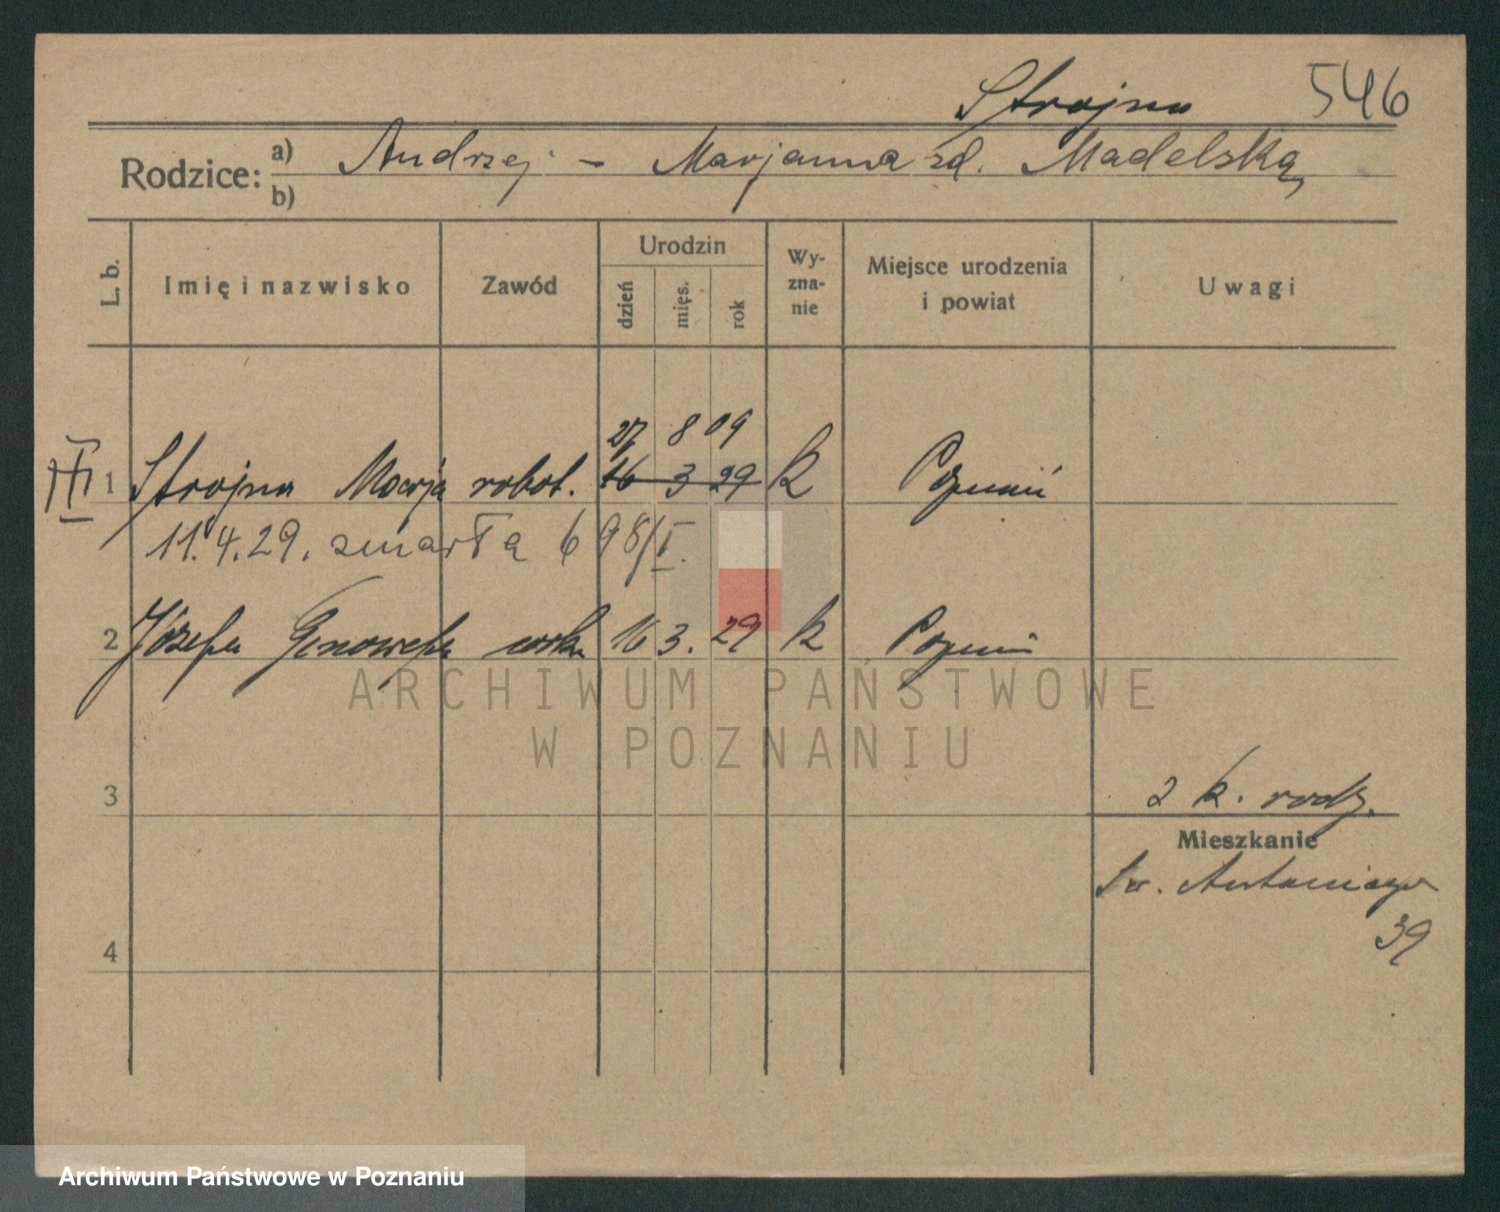 Strojna 546
Rodzice: a) Andrzej - Marjanna zd. Madelską
b)
L. b. Imię i nazwisko Zawód Urodzin dzień mięs. rok Wy-zna-nie Miejsce urodzenia i powiat Uwagi
27 8 09
III 1 Strojna Marja robot. 16 3 29 k Poznań
11.4.29. zmarła 698/I.
2 Józefa Genowefa córka 16 3. 29 k Poznań
ARCHIWUM PAŃSTWOWE
W POZNANIU
3 2 k. rodz.
Mieszkanie
Św. Antoniego
39
4
Archiwum Państwowe w Poznaniu